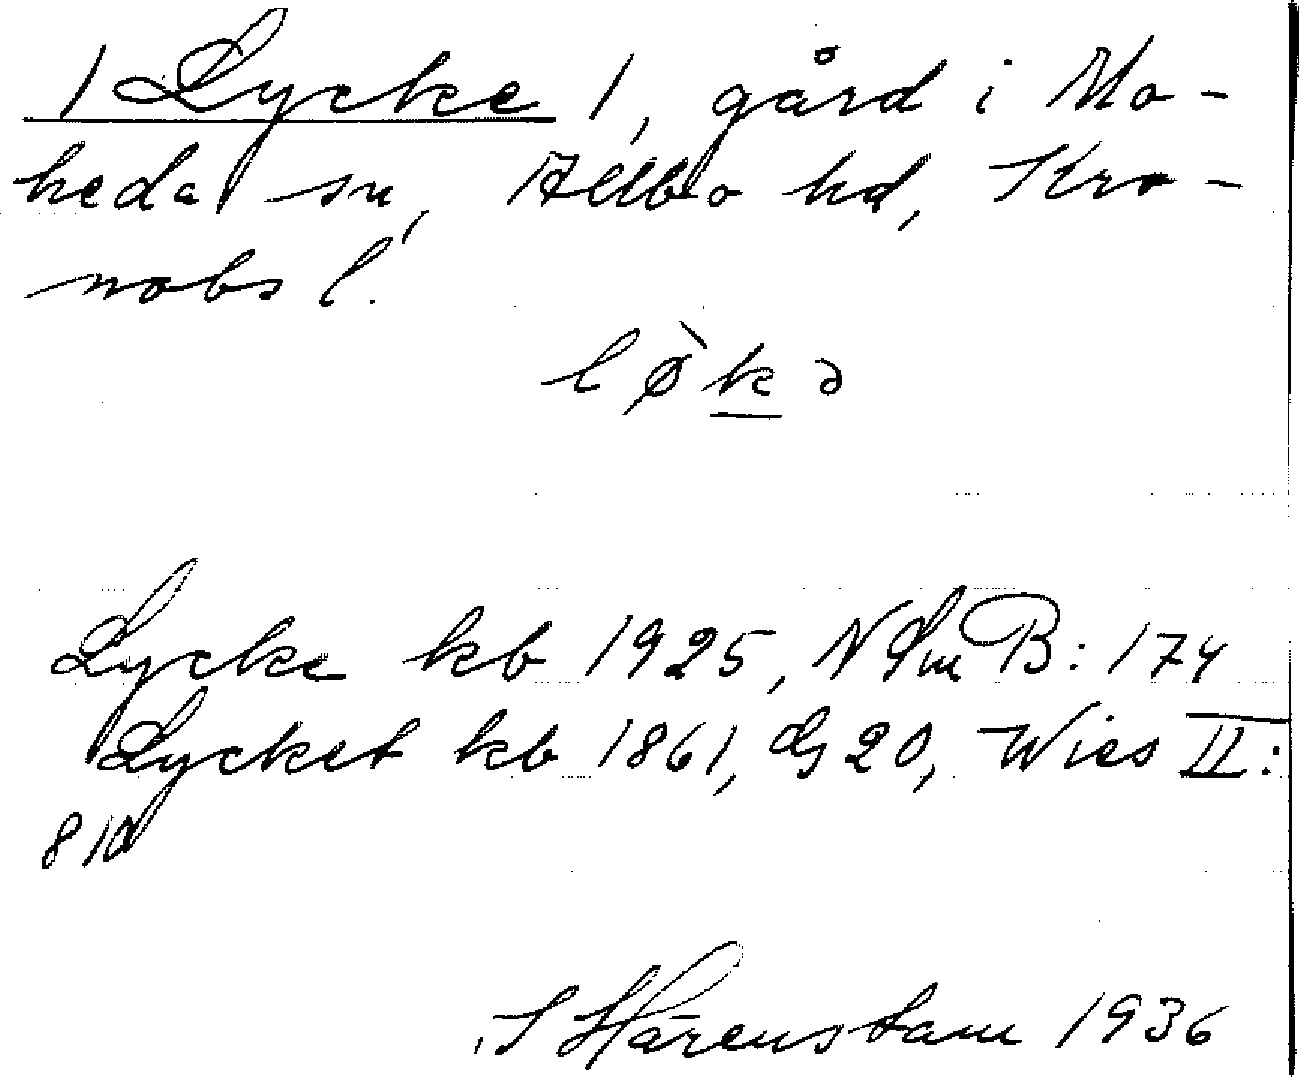 1 Lycke 1, gård i Mo-
heda sn, Allbo hd, Kro-
nobs l.
lø̀kə
Lycke kb 1925, NSmB: 174
Lycket kb 1861, GS 20, Wies II:
810
S Härenstam 1936